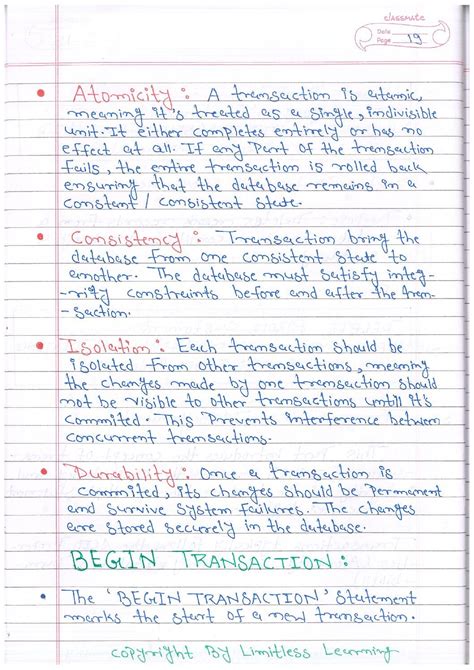 classmate
Date
Page 19
• Atomicity : A transaction is atomic,
meaning it's treated as a single, indivisible
unit. It either completes entirely or has no
effect at all. If any Part of the transaction
fails, the entire transaction is rolled back
ensuring that the database remains in a
constant / consistent state.
• Consistency : Transaction bring the
database from one consistent state to
another. The database must satisfy integ-
-rity constraints before and after the tran-
-saction.
• Isolation : Each transaction should be
isolated from other transactions, meaning
the changes made by one transaction should
not be visible to other transactions untill it's
commited. This Prevents interference between
concurrent transactions.
• Durability : Once a transaction is
commited, its changes should be Permanent
and survive system failures. The changes
are stored securely in the database.
BEGIN TRANSACTION :
• The 'BEGIN TRANSACTION' statement
marks the start of a new transaction.
copyright By Limitless Learning